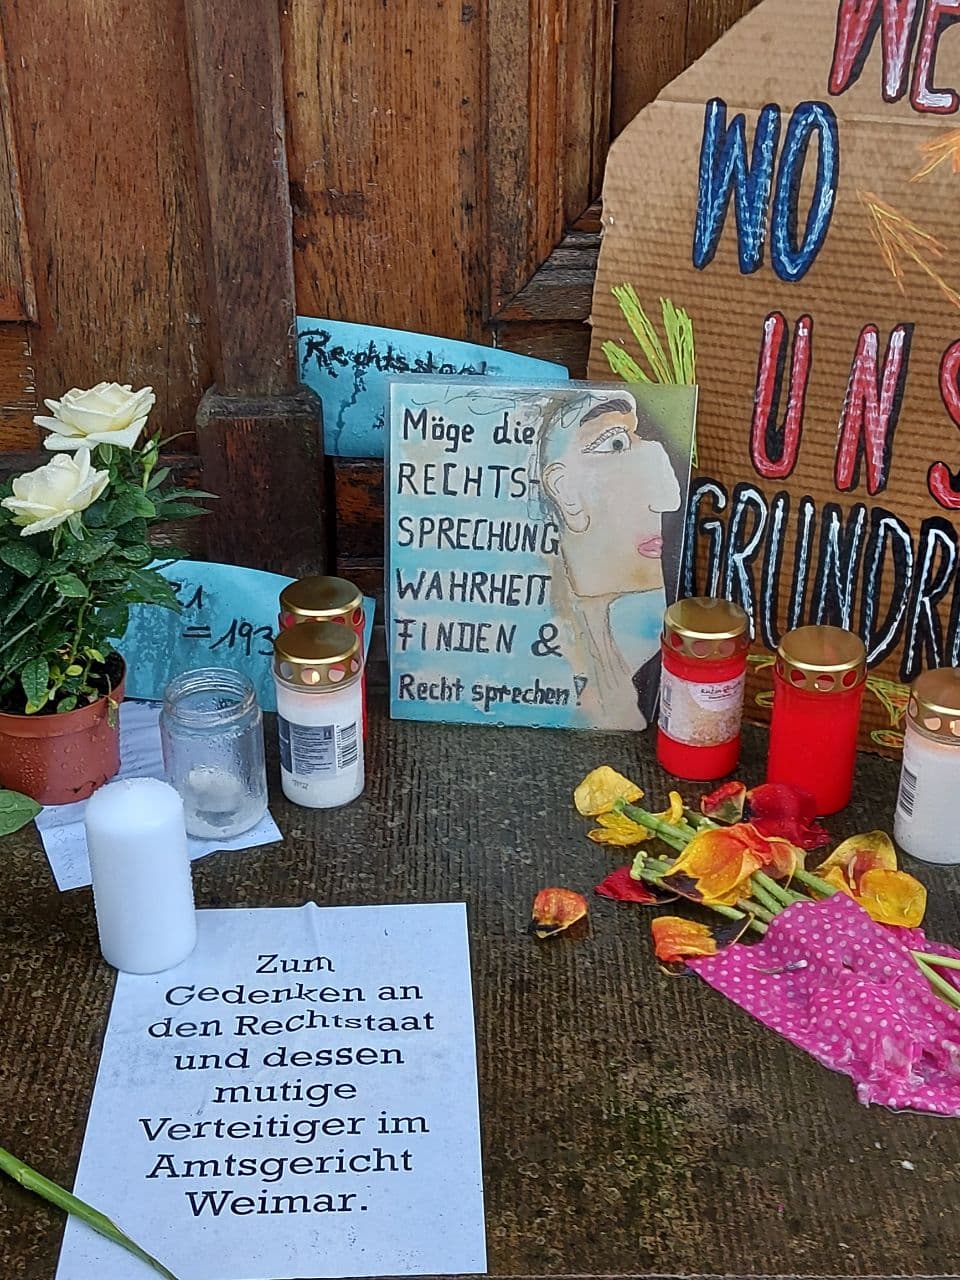 WE
WO
UNS
GRUNDR
Rechtsstaat
Möge die
RECHTS-
SPRECHUNG
WAHRHEIT
FINDEN &
Recht sprechen!
1
=193
Zum
Gedenken an
den Rechtstaat
und dessen
mutige
Verteitiger im
Amtsgericht
Weimar.